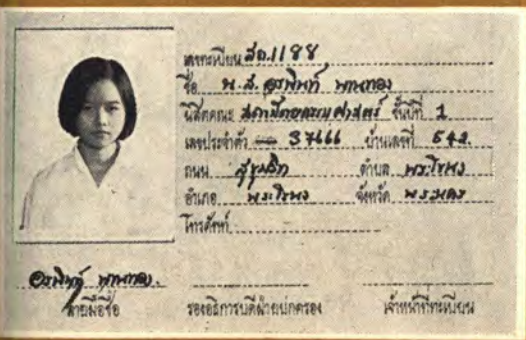 เลขทะเบียน สถ.1188
ชื่อ น.ส. อรพินท์ พานทอง
นิสิตคณะ สถาปัตยกรรมศาสตร์ ชั้นปีที่ 1
เลขประจำตัว 37666 บ้านเลขที่ 542.
ถนน สุขุมวิท ตำบล พระโขนง
อำเภอ พระโขนง จังหวัด พระนคร
โทรศัพท์
อรพินท์ พานทอง.
ลายมือชื่อ รองอธิการบดีฝ่ายปกครอง เจ้าหน้าที่ทะเบียน